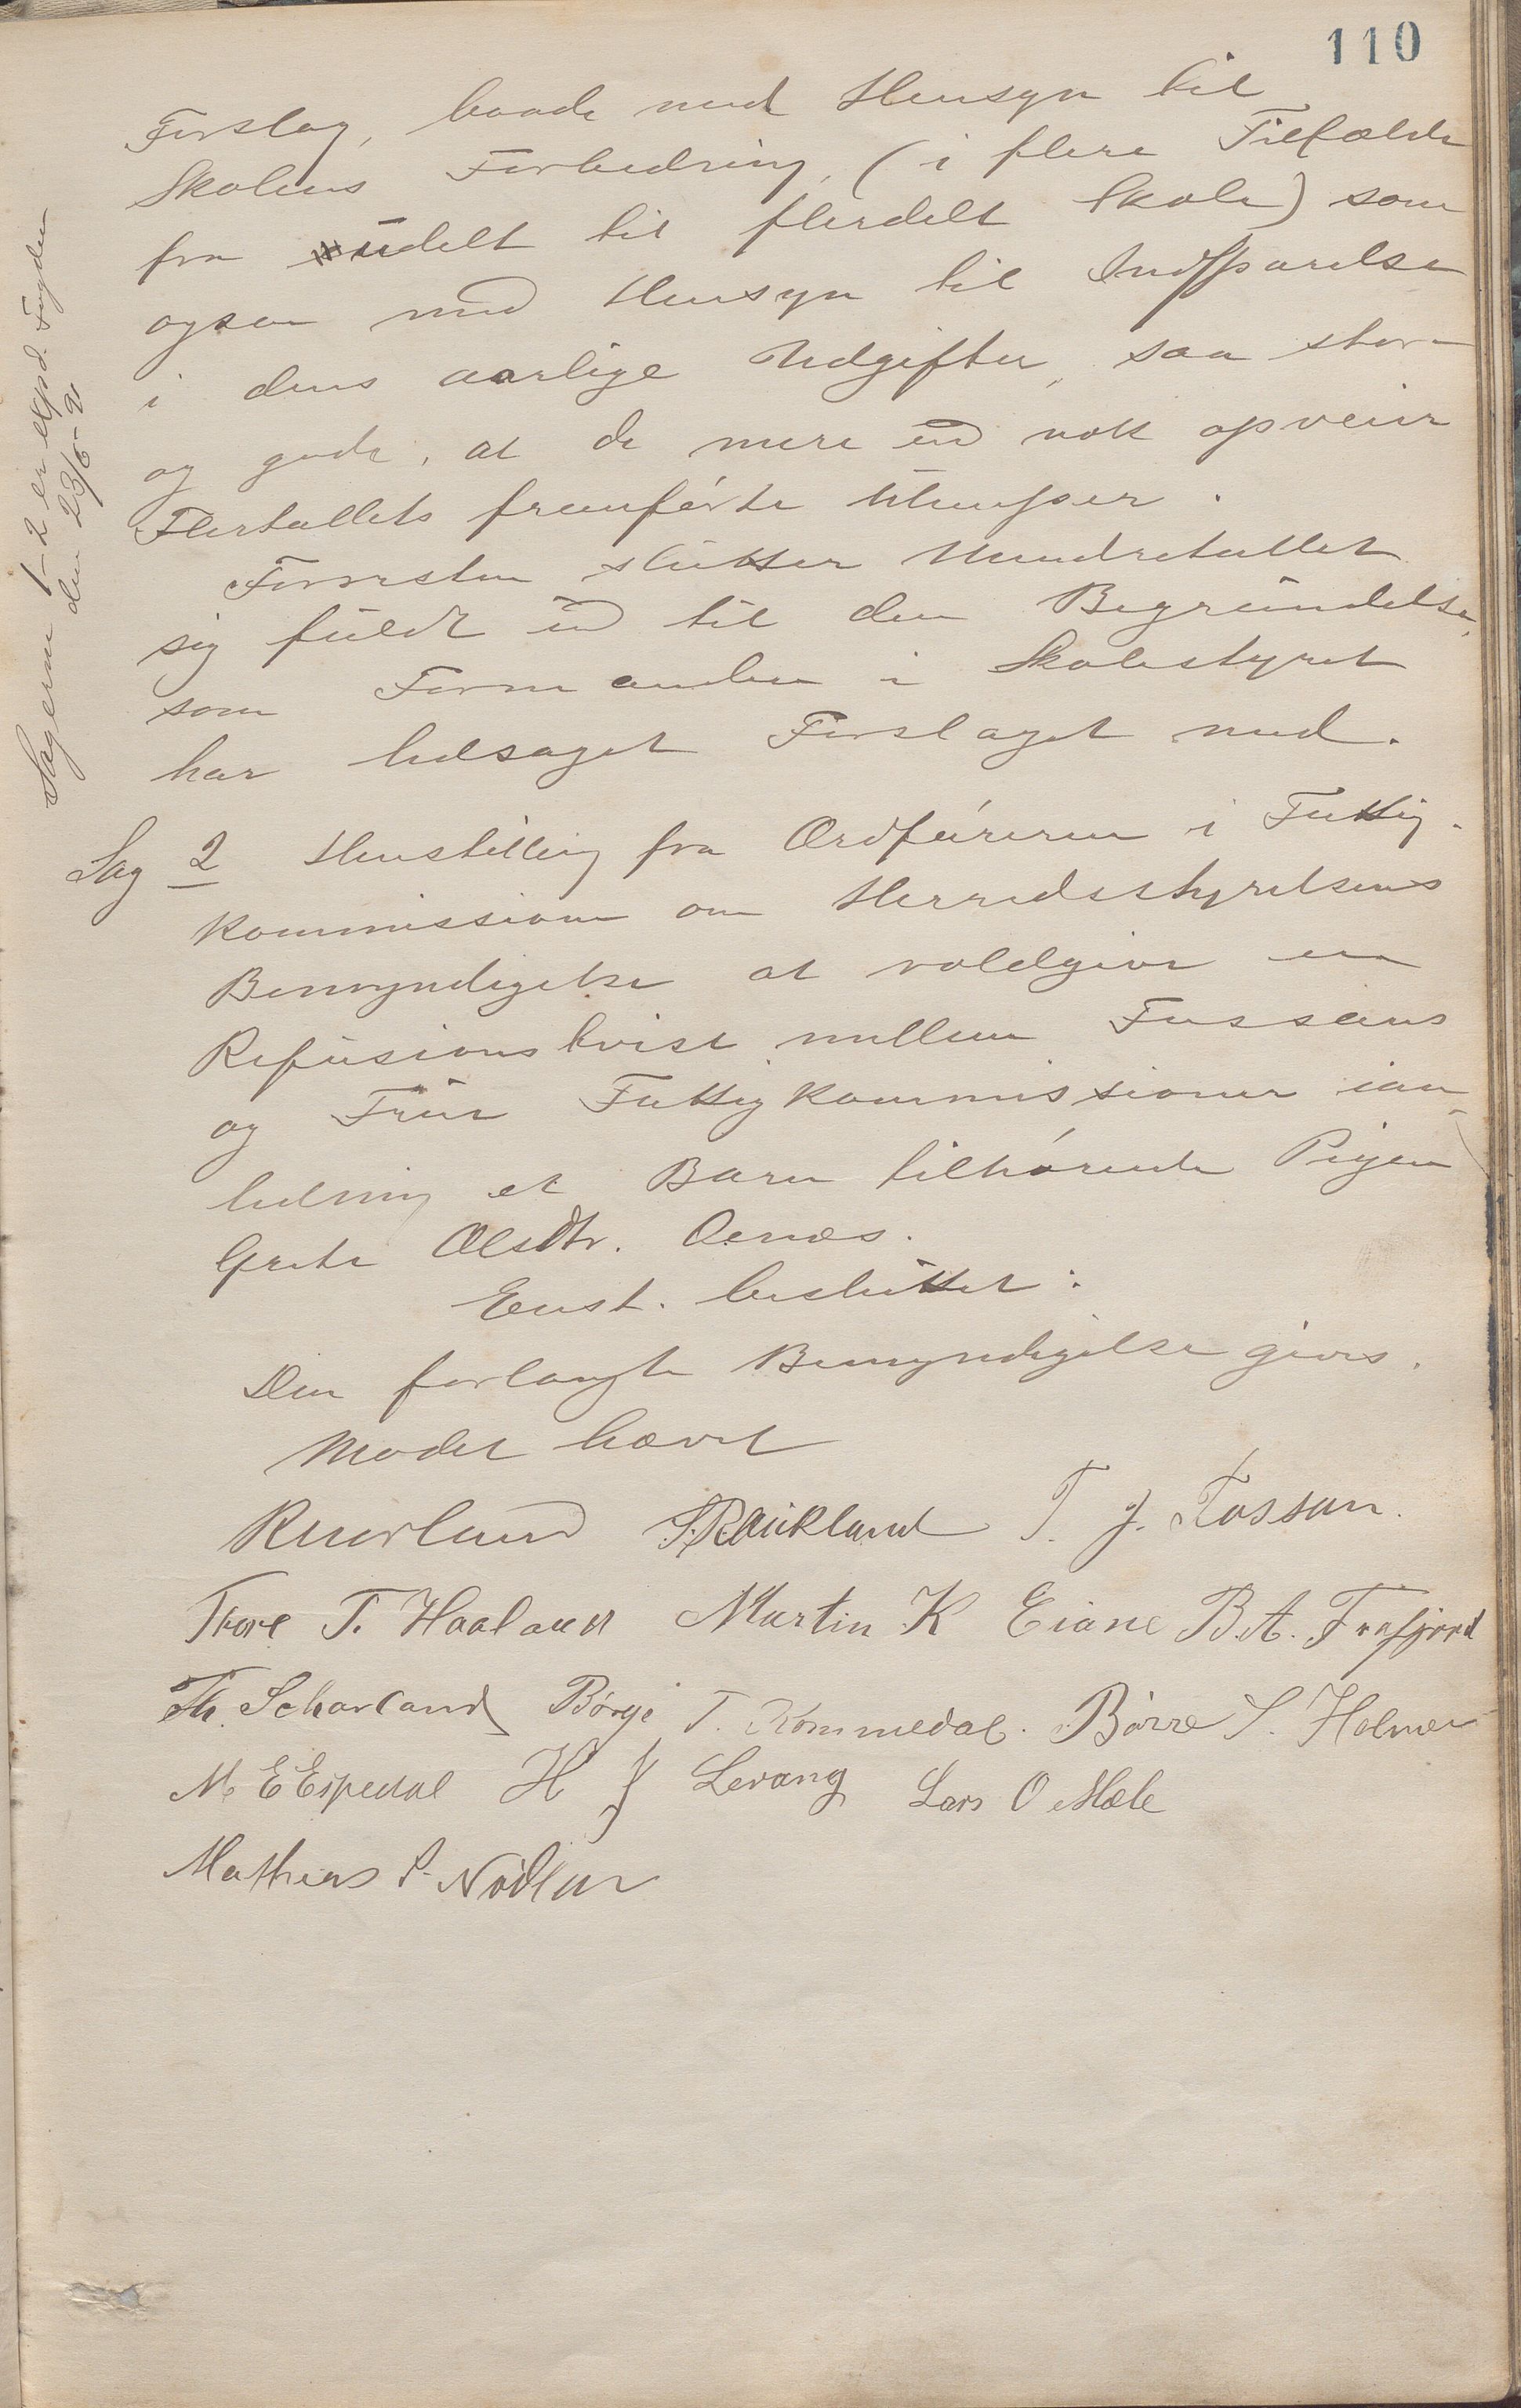 110
Forslag, baade med Hensyn til
Skolens Forbedring, (i flere Tilfælde
fra udelt til flerdelt Skole) som
ogsaa med Hensyn til Indsparelse
i dens aarlige Udgifter, saa store
og gode, at de mere end nok opveier
Flertallets fremførte Ulemper.
Forresten slutter Mindretallet
sig fuldt ud til den Begrundelse,
som Formanden i Skolestyret
har ledsaget Forslaget med.
Sagerne 1-2 er expd. Fogden
den 23/6-91
Sag 2 Henstilling fra Ordføreren i Fattig-
kommissionen om Herredsstyrelsens
Bemyndigelse at voldgive en
Refusionstvist mellem Fossans
og Fattigkommissioner ian-
ledning et Barn tilhørende Pigen
Grete Olsdtr. Oenæs.
Enst. besluttet:
Den forlangte Bemyndigelse gives.
Mødet hævet
S. R. Aukland T. J. Fossan.
Thore T. Haaland Martin K Eiane B. A. Frafjord
Th. Scharland Børge T. Kommedal. Børre S. Holmen
M. E Espedal H J Levang Lars O Mæle
Mathias S. Nødlan